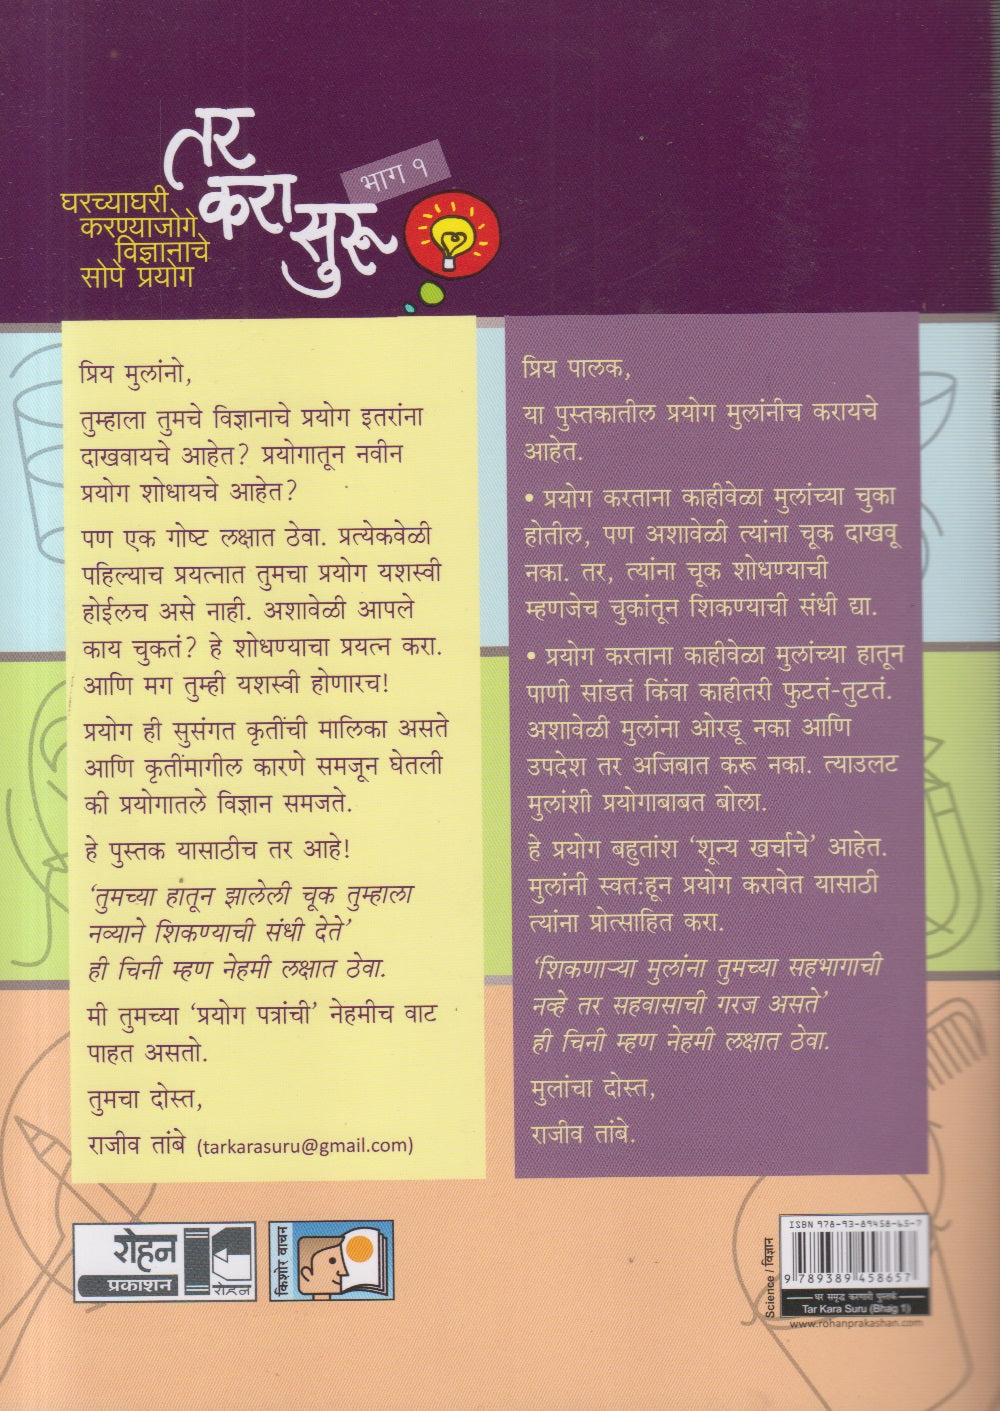 तर
करा
सुरू
भाग १
घरच्याघरी
करण्याजोगे
विज्ञानाचे
सोपे प्रयोग
प्रिय मुलांनो,
तुम्हाला तुमचे विज्ञानाचे प्रयोग इतरांना
दाखवायचे आहेत? प्रयोगातून नवीन
प्रयोग शोधायचे आहेत?
पण एक गोष्ट लक्षात ठेवा. प्रत्येकवेळी
पहिल्याच प्रयत्नात तुमचा प्रयोग यशस्वी
होईलच असे नाही. अशावेळी आपले
काय चुकतं? हे शोधण्याचा प्रयत्न करा.
आणि मग तुम्ही यशस्वी होणारच!
प्रयोग ही सुसंगत कृतींची मालिका असते
आणि कृतींमागील कारणे समजून घेतली
की प्रयोगातले विज्ञान समजते.
हे पुस्तक यासाठीच तर आहे!
‘तुमच्या हातून झालेली चूक तुम्हाला
नव्याने शिकण्याची संधी देते’
ही चिनी म्हण नेहमी लक्षात ठेवा.
मी तुमच्या ‘प्रयोग पत्रांची’ नेहमीच वाट
पाहत असतो.
तुमचा दोस्त,
राजीव तांबे (tarkarasuru@gmail.com)
प्रिय पालक,
या पुस्तकातील प्रयोग मुलांनीच करायचे
आहेत.
• प्रयोग करताना काहीवेळा मुलांच्या चुका
होतील, पण अशावेळी त्यांना चूक दाखवू
नका. तर, त्यांना चूक शोधण्याची
म्हणजेच चुकांतून शिकण्याची संधी द्या.
• प्रयोग करताना काहीवेळा मुलांच्या हातून
पाणी सांडतं किंवा काहीतरी फुटतं-तुटतं.
अशावेळी मुलांना ओरडू नका आणि
उपदेश तर अजिबात करू नका. त्याउलट
मुलांशी प्रयोगाबाबत बोला.
हे प्रयोग बहुतांश ‘शून्य खर्चाचे’ आहेत.
मुलांनी स्वत:हून प्रयोग करावेत यासाठी
त्यांना प्रोत्साहित करा.
‘शिकणाऱ्या मुलांना तुमच्या सहभागाची
नव्हे तर सहवासाची गरज असते’
ही चिनी म्हण नेहमी लक्षात ठेवा.
मुलांचा दोस्त,
राजीव तांबे.
रोहन
प्रकाशन
रोहन
किशोर वाचन
Science / विज्ञान
ISBN 978-93-89458-65-7
9 789389 458657
घर समृद्ध करणारी पुस्तकं
Tar Kara Suru (Bhag 1)
www.rohanprakashan.com